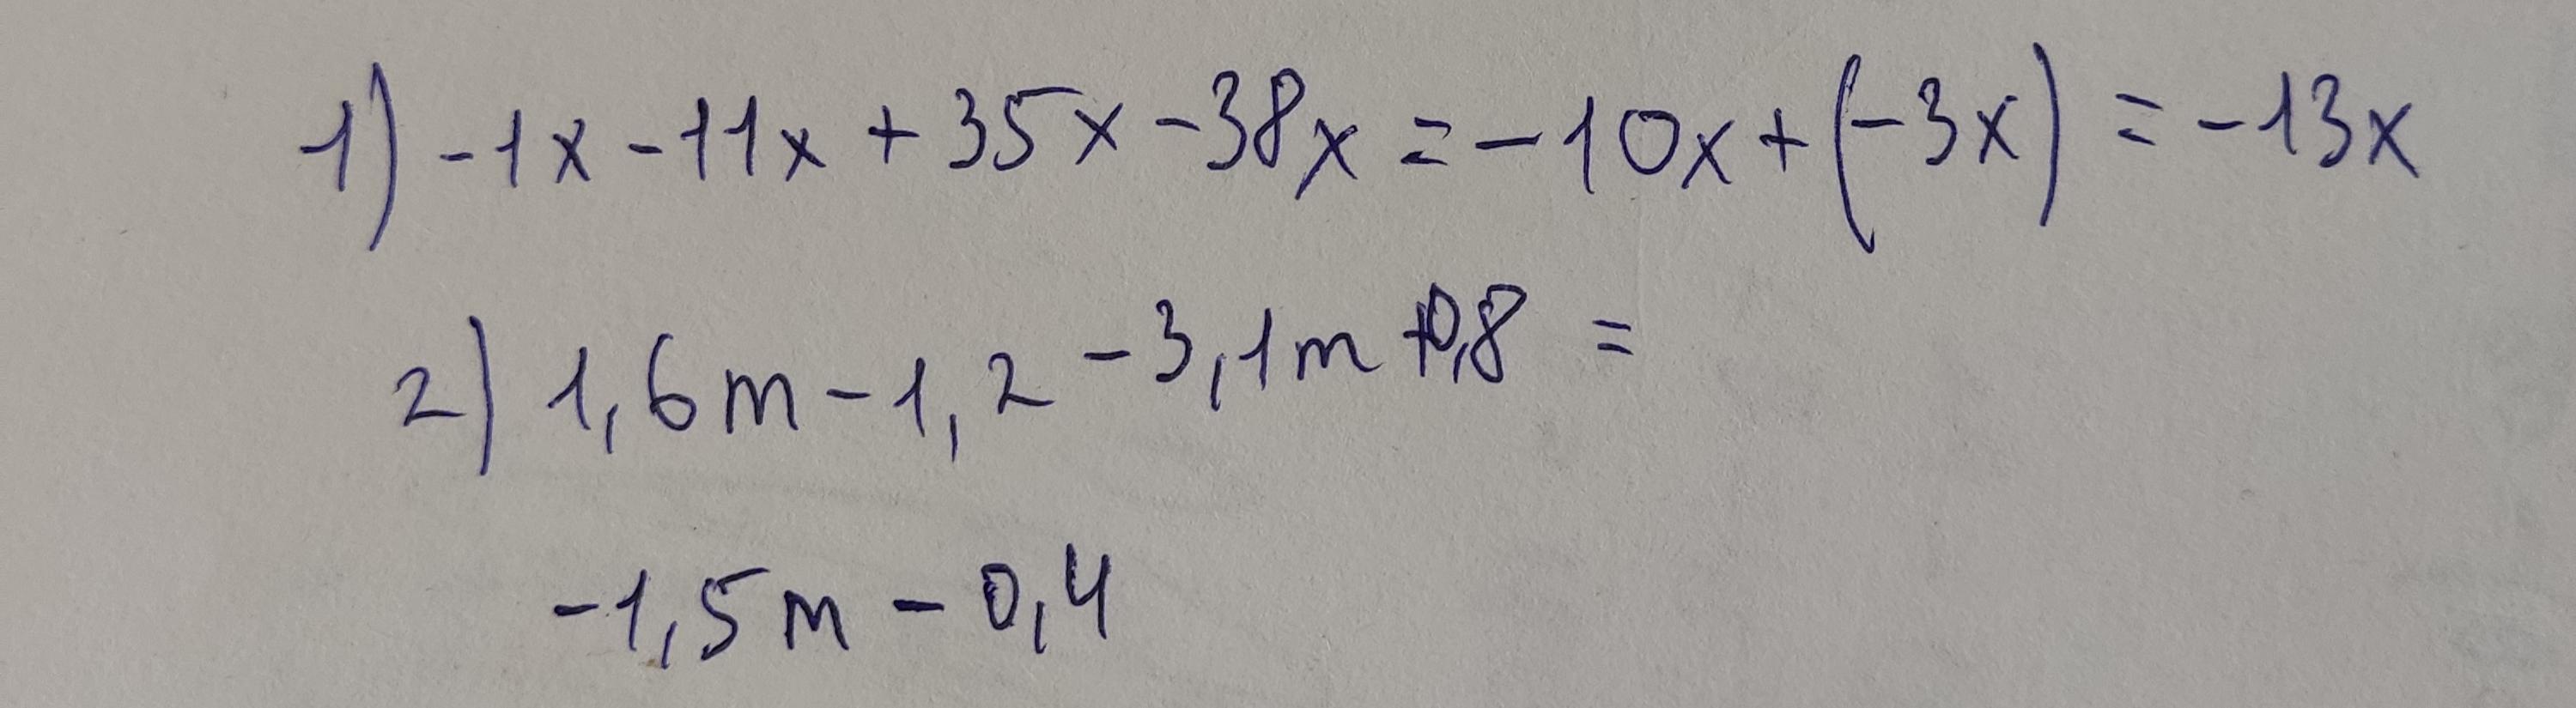 1) -1x -11x + 35x -38x = -10x + (-3x) = -13x
2) 1,6m - 1,2 - 3,1m + 0,8 =
-1,5m - 0,4